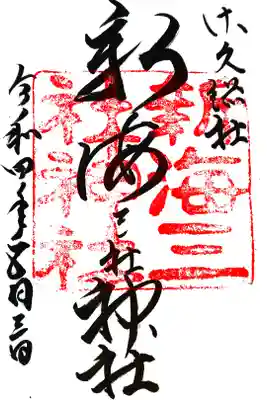 佐久総社
新海三社神社
令和四年五月三日
新海三
社神社